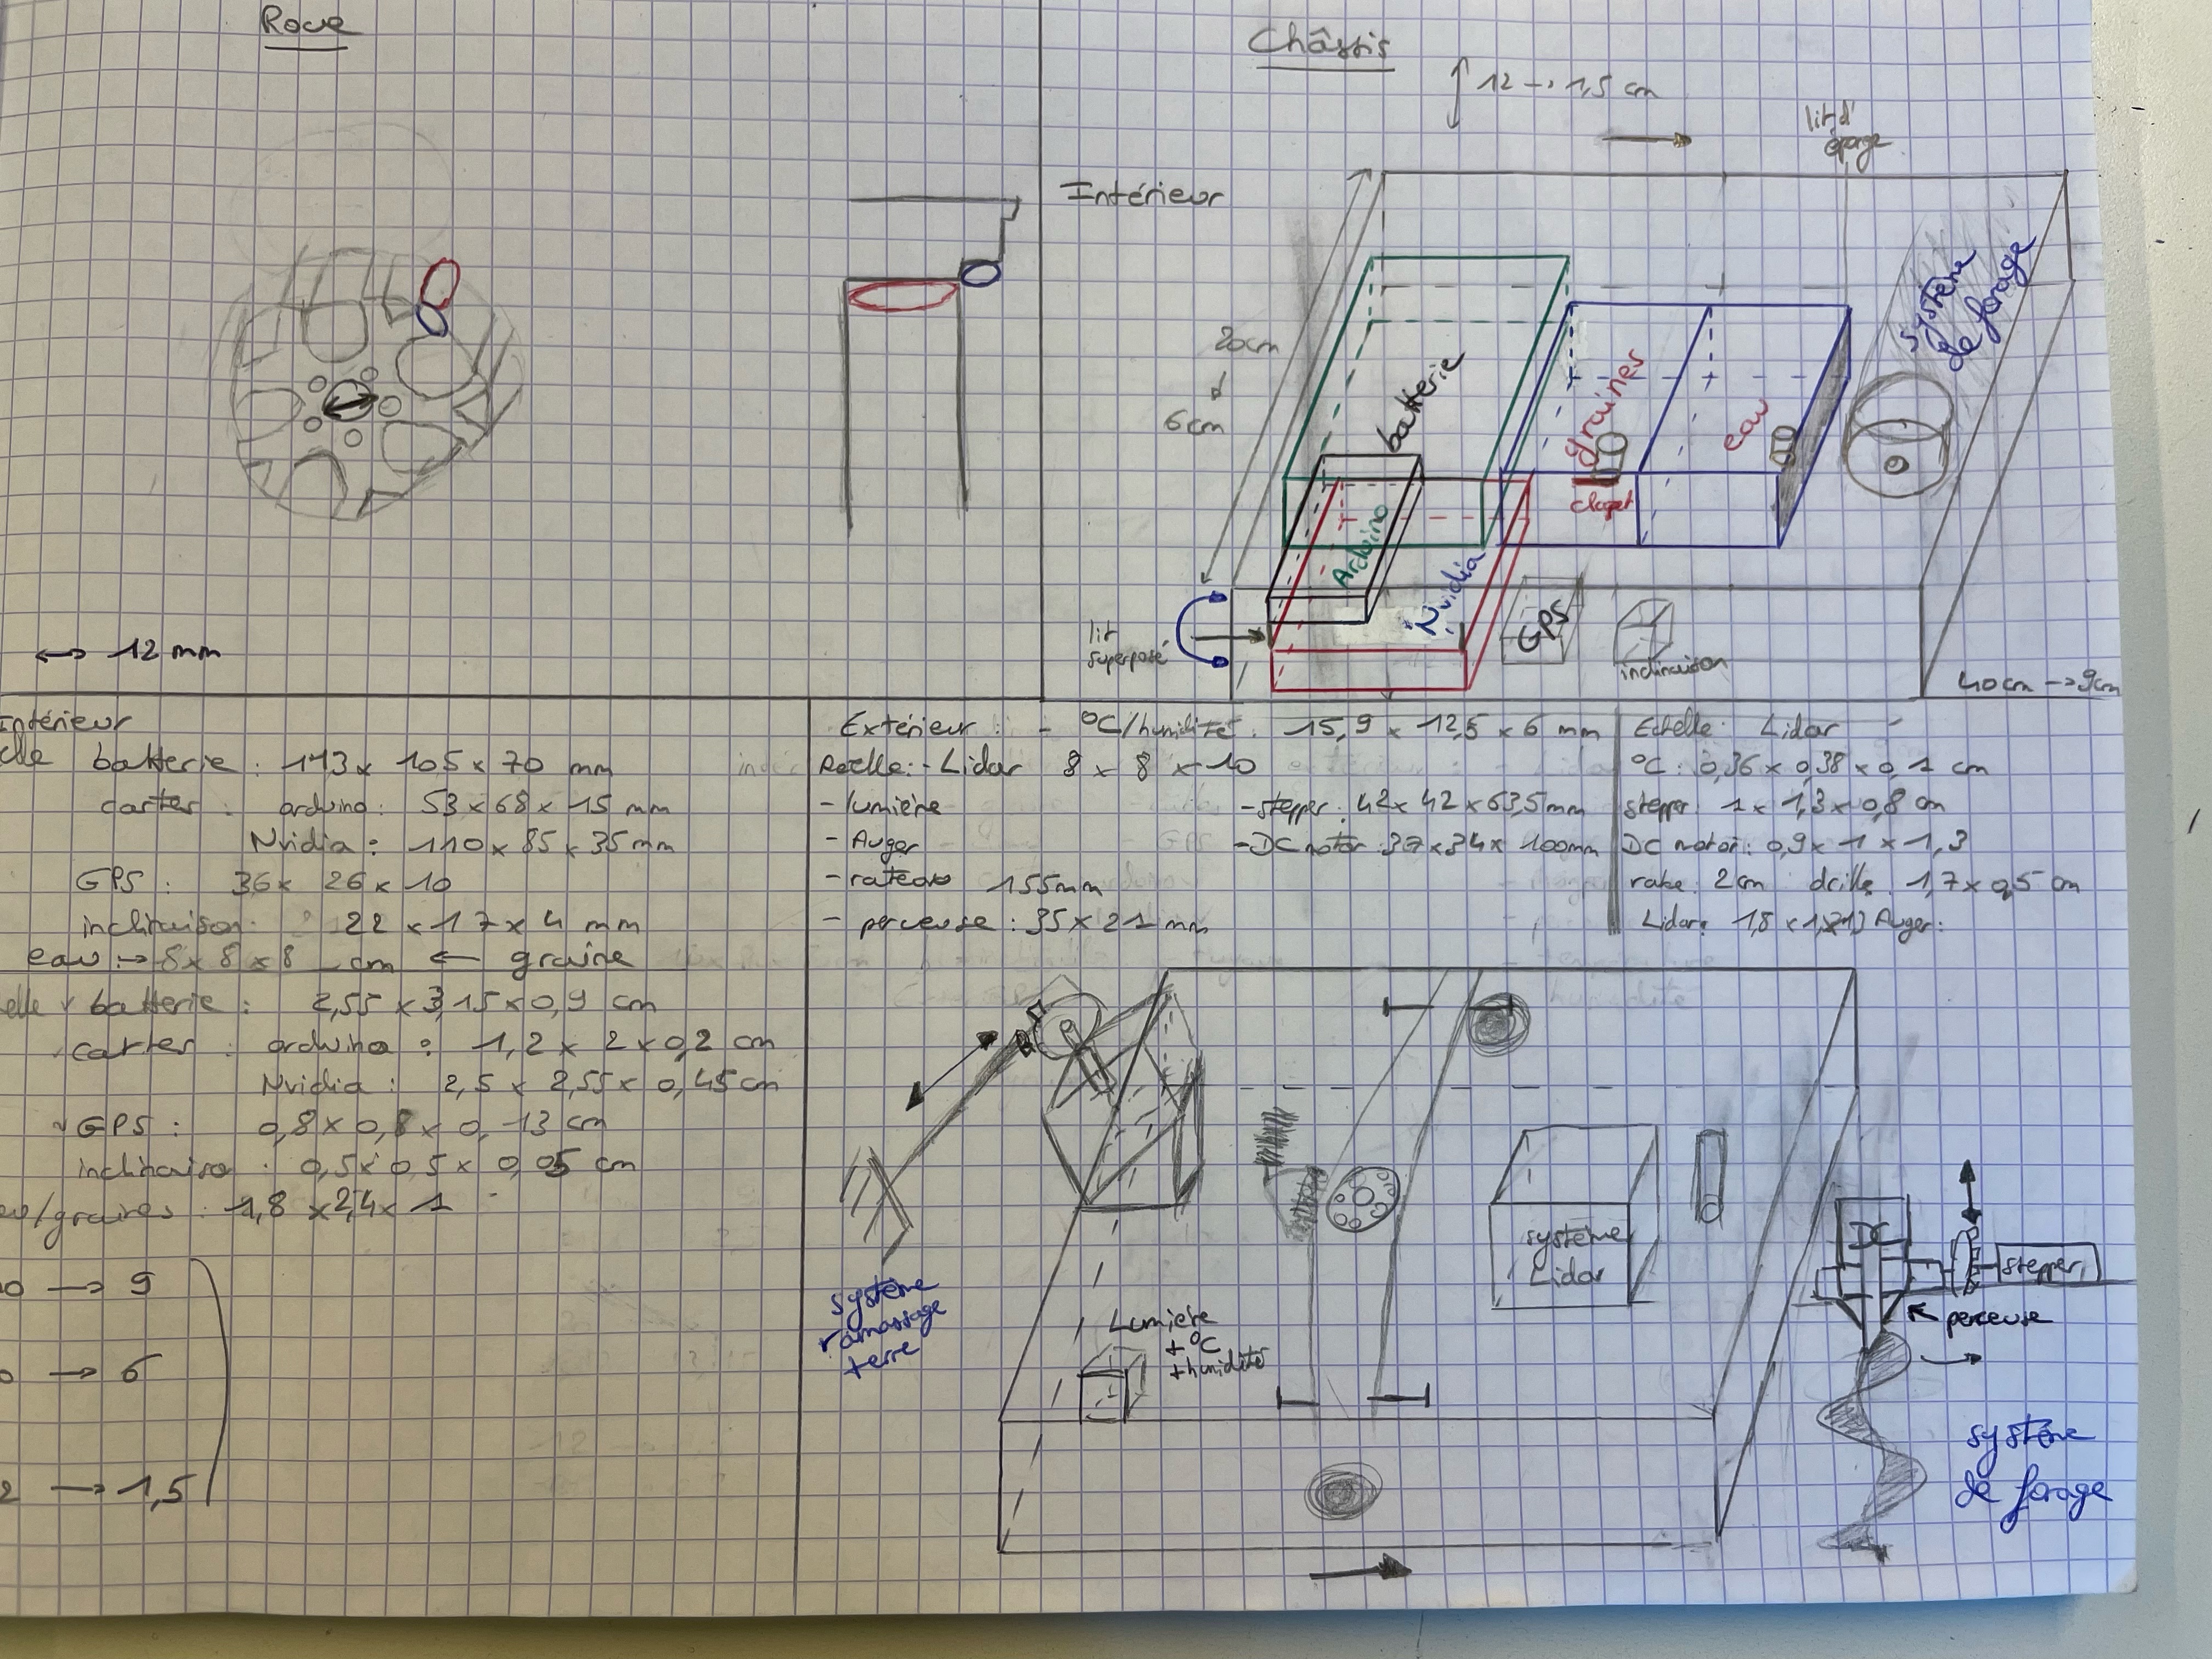 Roue
↔ 12 mm
Châssis
12 → 1,5 cm
lit d'
éponge
Intérieur
20cm
↓
6cm
batterie
graines
eau
clapet
système
de forage
Arduino
Nvidia
GPS
inclinaison
lit
superposé
40cm → 9cm
Intérieur
batterie : 113 x 105 x 70 mm
cartes : arduino : 53 x 68 x 15 mm
Nvidia : 110 x 85 x 35 mm
GPS : 36 x 26 x 10
inclinaison : 22 x 17 x 4 mm
eau : → 8 x 8 x 8 cm ← graine
batterie : 2,55 x 3,15 x 0,9 cm
cartes : arduino : 1,2 x 2 x 0,2 cm
Nvidia : 2,5 x 2,55 x 0,45 cm
GPS : 0,8 x 0,8 x 0,13 cm
inclinaiso : 0,5 x 0,5 x 0,05 cm
/graines : 1,8 x 2,4 x 1
→ 9
→ 6
2 → 1,5
Extérieur : - °C/humidité : 15,9 x 12,5 x 6 mm
Réelle : - Lidar 8 x 8 x 10
- lumière
- stepper : 42 x 42 x 63,5mm
- Auger
- DC motor : 37 x 34 x 100mm
- rateau 155mm
- perceuse : 35 x 21 mm
Echelle : Lidar
°C : 0,36 x 0,38 x 0,1 cm
stepper : 1 x 1,3 x 0,8 cm
DC motor : 0,9 x 1 x 1,3
rake : 2cm drille : 1,7 x 0,5 cm
Lidar : 1,8 x Auger :
système
ramassage
terre
Lumière
+ °C
+ humidité
système
Lidar
DC
stepper
perceuse
système
de forage